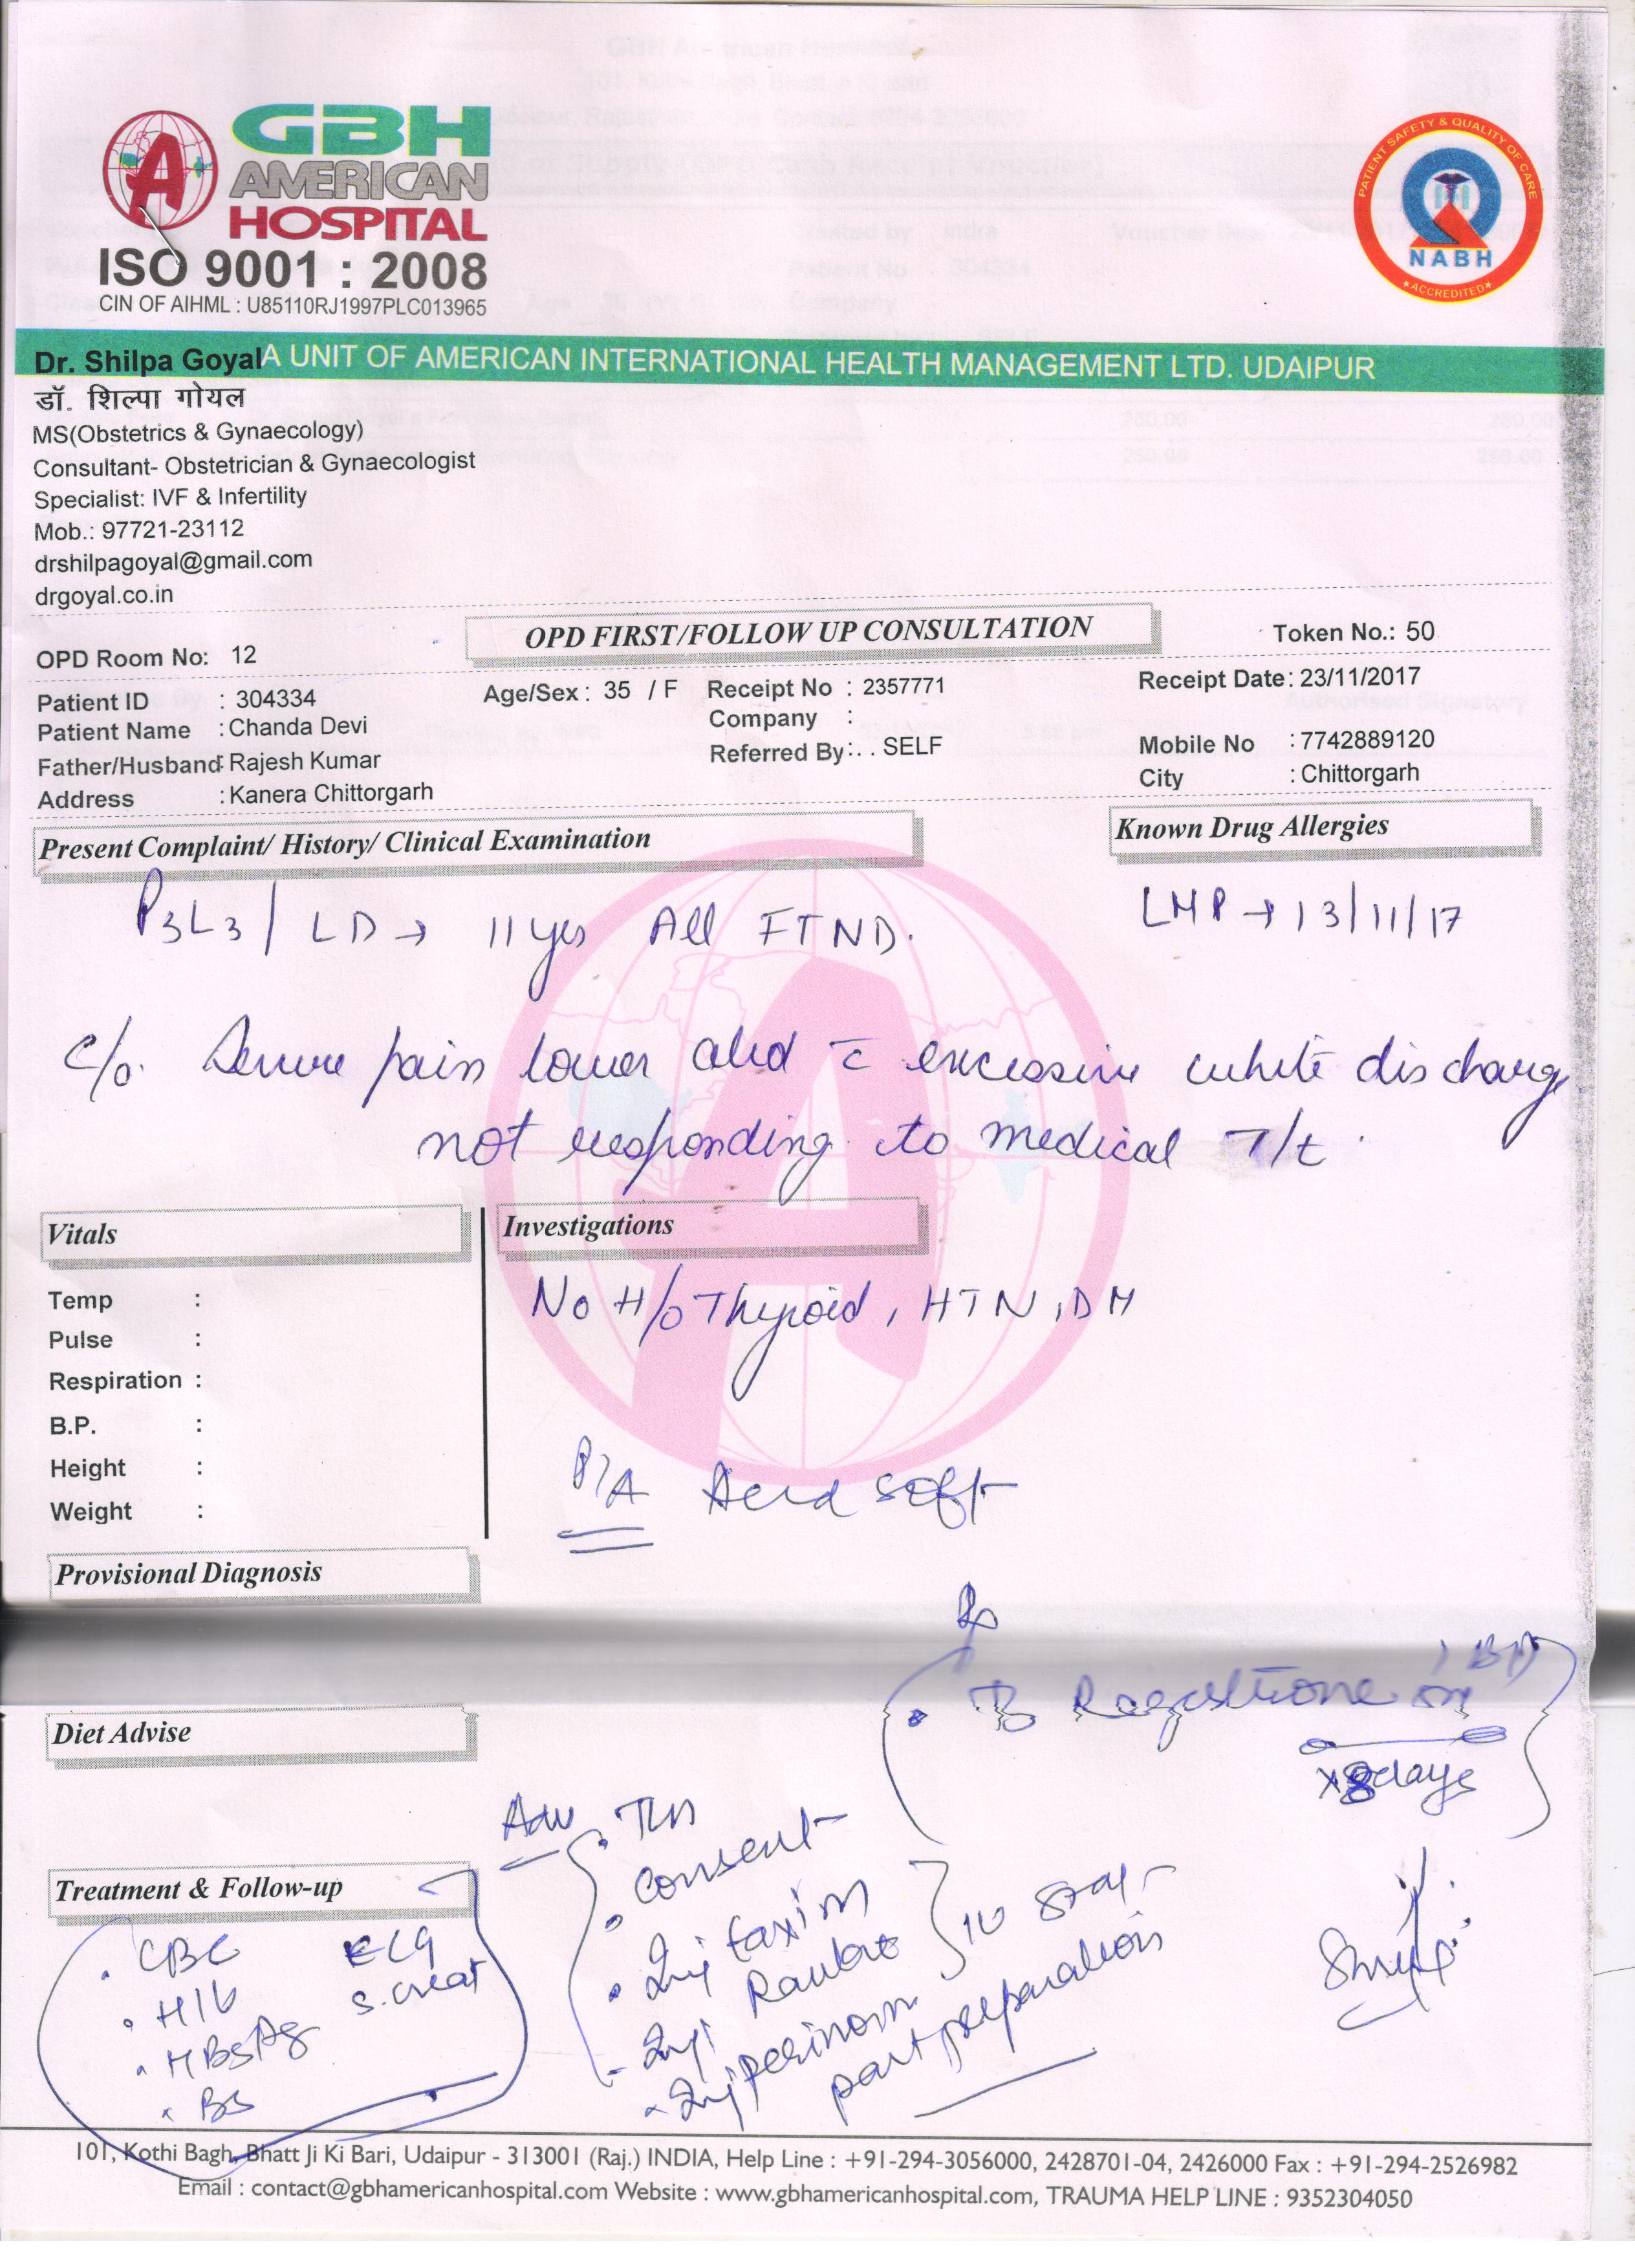 GBH
AMERICAN
HOSPITAL
ISO 9001 : 2008
CIN OF AIHML : U85110RJ1997PLC013965
PATIENT SAFETY & QUALITY OF CARE
NABH
ACCREDITED
A UNIT OF AMERICAN INTERNATIONAL HEALTH MANAGEMENT LTD. UDAIPUR
Dr. Shilpa Goyal
डॉ. शिल्पा गोयल
MS(Obstetrics & Gynaecology)
Consultant- Obstetrician & Gynaecologist
Specialist: IVF & Infertility
Mob.: 97721-23112
drshilpagoyal@gmail.com
drgoyal.co.in
OPD Room No: 12
OPD FIRST/FOLLOW UP CONSULTATION
Token No.: 50
Patient ID : 304334 Age/Sex : 35 / F Receipt No : 2357771 Receipt Date: 23/11/2017
Patient Name : Chanda Devi Company :
Father/Husband: Rajesh Kumar Referred By: . . SELF Mobile No : 7742889120
Address : Kanera Chittorgarh City : Chittorgarh
Present Complaint/ History/ Clinical Examination
Known Drug Allergies
P3L3 / LD → 11 yrs All FTND.
LMP → 13/11/17
C/o. Severe pain lower abd c̄ excessive white discharge
not responding to medical T/t.
Vitals
Investigations
Temp :
Pulse :
Respiration :
B.P. :
Height :
Weight :
No H/o Thyroid, HTN, DM
P/A Abd soft
Provisional Diagnosis
Rx
1 BD
x 8 days
Diet Advise
Adv
Consent
Inj taxim
Inj
Inj
part preparation
Treatment & Follow-up
CBC ECG
HIV S. creat
HBsAg
BS
101, Kothi Bagh, Bhatt Ji Ki Bari, Udaipur - 313001 (Raj.) INDIA, Help Line : +91-294-3056000, 2428701-04, 2426000 Fax : +91-294-2526982
Email : contact@gbhamericanhospital.com Website : www.gbhamericanhospital.com, TRAUMA HELP LINE : 9352304050